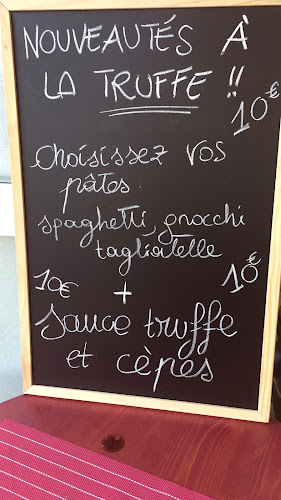 NOUVEAUTÉS À
LA TRUFFE !!
10€
Choisissez vos
pâtes :
spaghetti, gnocchi
tagliatelle
10€ + 10€
sauce truffe
et cèpes